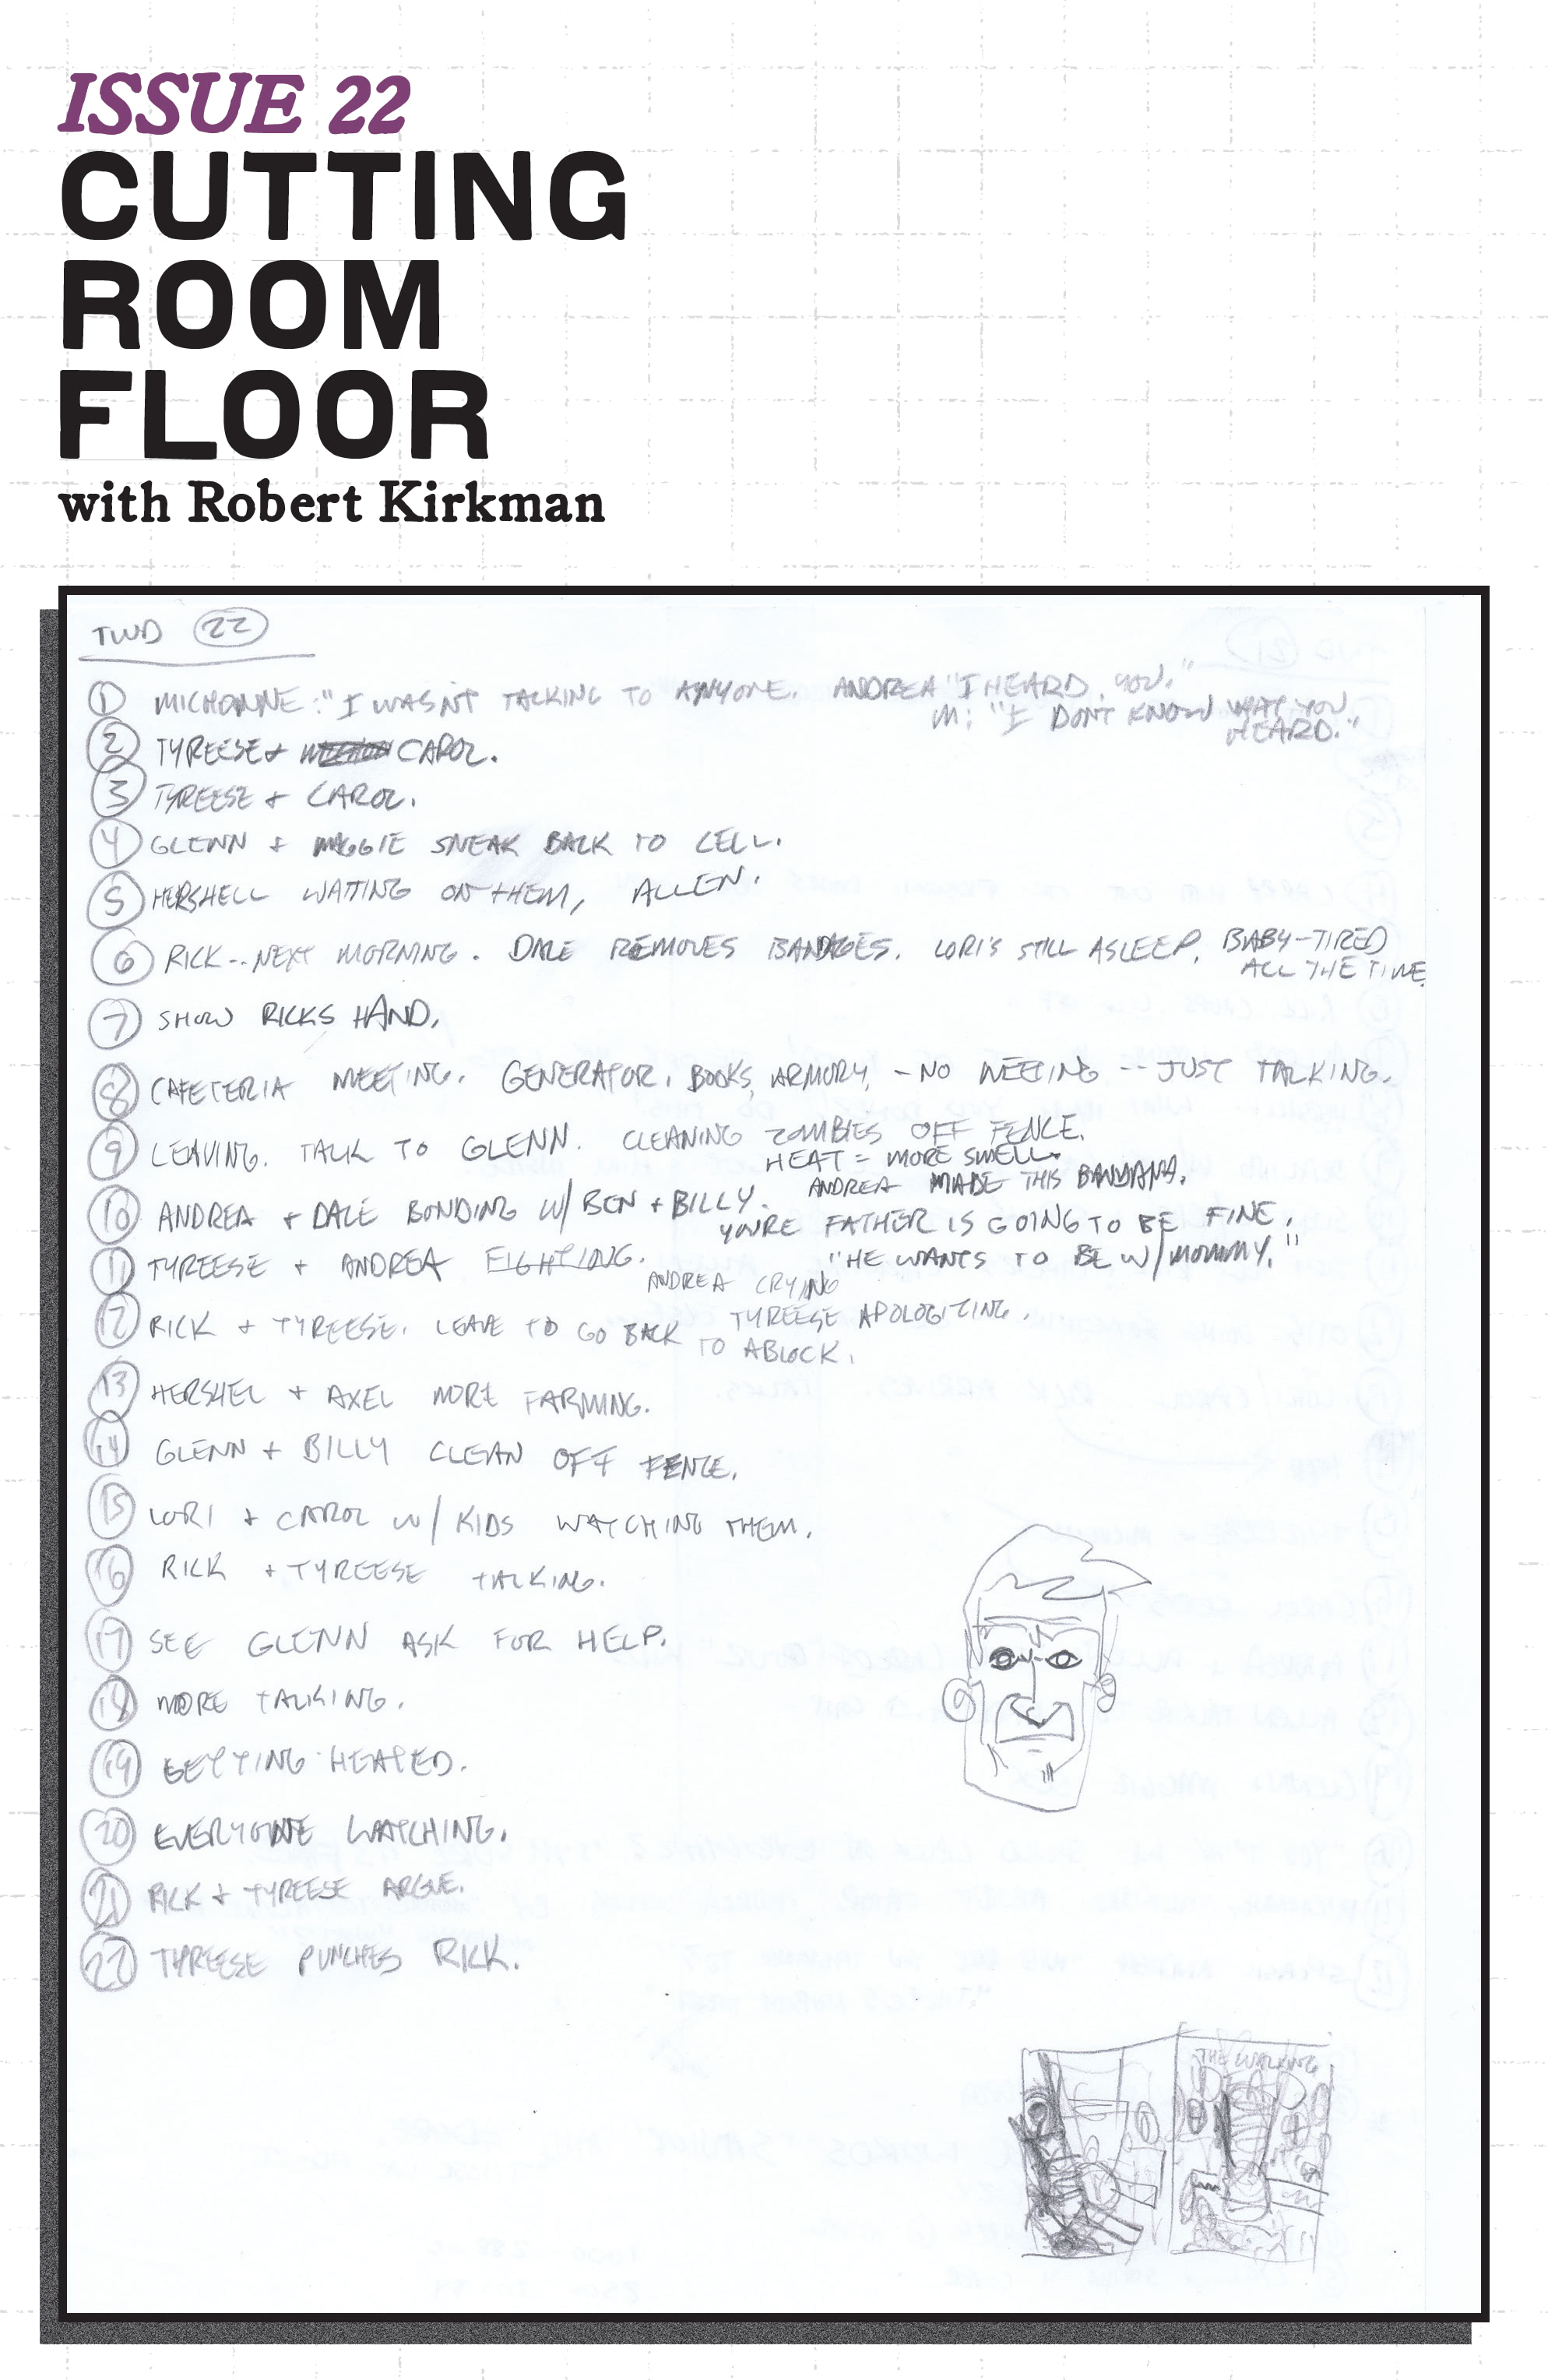 ISSUE 22
CUTTING
ROOM
FLOOR
with Robert Kirkman
TWD 22
1 MICHONNE: "I WASN'T TALKING TO ANYONE. ANDREA "I HEARD YOU."
M: "I DON'T KNOW WHAT YOU
HEARD."
2 TYREESE + CAROL.
3 TYREESE + CAROL.
4 GLENN + MAGGIE SNEAK BACK TO CELL.
5 HERSHELL WAITING ON THEM, ALLEN.
6 RICK-- NEXT MORNING. DALE REMOVES BANDAGES. LORI'S STILL ASLEEP. BABY-TIRED
ALL THE TIME.
7 SHOW RICKS HAND.
8 CAFETERIA MEETING. GENERATOR, BOOKS, ARMORY, - NO MEETING -- JUST TALKING.
9 LEAVING. TALK TO GLENN. CLEANING ZOMBIES OFF FENCE.
HEAT = MORE SMELL.
ANDREA MADE THIS BANDANA.
10 ANDREA + DALE BONDING W/ BEN + BILLY.
YOU'RE FATHER IS GOING TO BE FINE.
"HE WANTS TO BE W/ MOMMY."
11 TYREESE + ANDREA FIGHTING.
ANDREA CRYING
TYREESE APOLOGIZING.
12 RICK + TYREESE. LEAVE TO GO BACK TO A BLOCK.
13 HERSHEL + AXEL MORE FARMING.
14 GLENN + BILLY CLEAN OFF FENCE.
15 LORI + CAROL W/ KIDS WATCHING THEM.
16 RICK + TYREESE TALKING.
17 SEE GLENN ASK FOR HELP.
18 MORE TALKING.
19 GETTING HEATED.
20 EVERYONE WATCHING.
21 RICK + TYREESE ARGUE.
22 TYREESE PUNCHES RICK.
THE WALKING